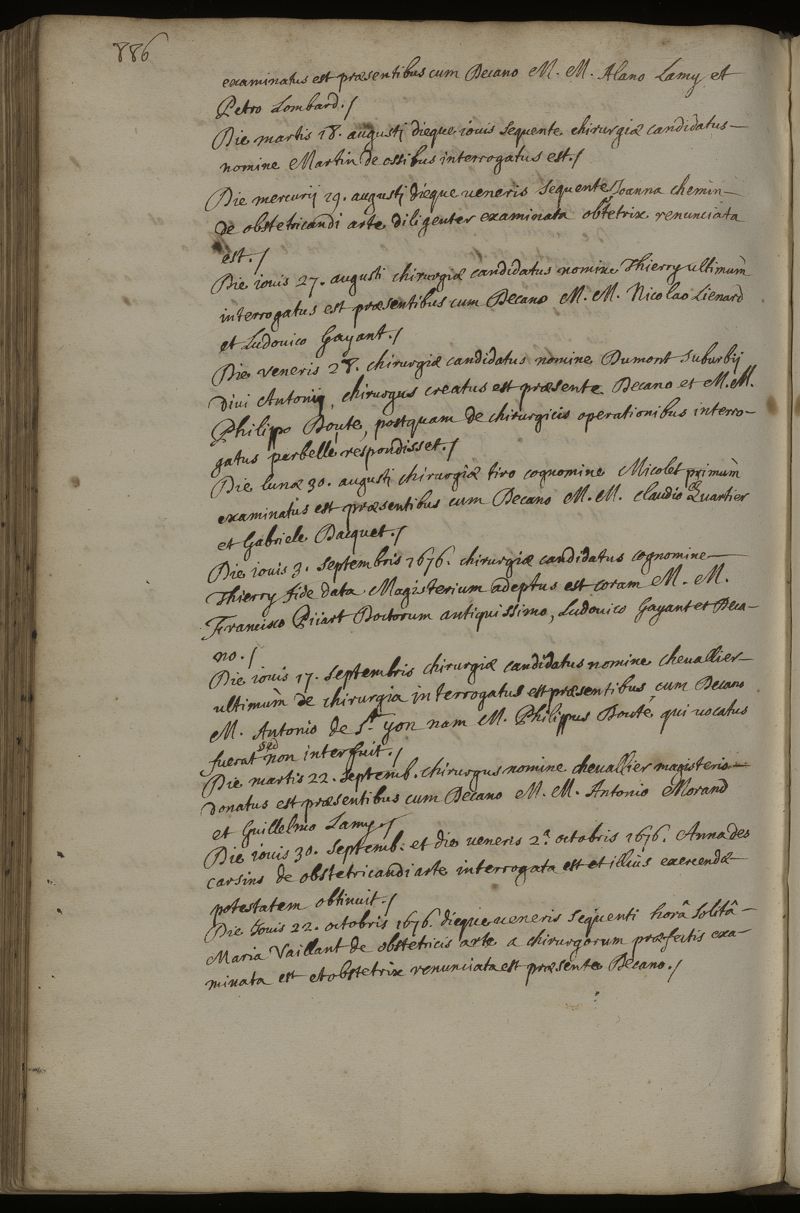 886
examinatus est præsentibus cum Decano M. M. Alano Lamy et
Petro Lombard./
Die martis 18. augustj dieque iouis sequente chirurgiæ candidatus
nomine Martin de ossibus interrogatus est./
Die mercurij 19. augustj dieque ueneris sequente Joanna chemin
de obstetricandi arte diligenter examinata obstetrix renunciata
est./
Die iouis 27. augusti chirurgiæ candidatus nomine Thierry ultimum̀
interrogatus est præsentibus cum Decano M. M. Nicolao Lienard
et Ludouico Gayant./
Die veneris 28. chirurgiæ candidatus nomine Dumont suburbij
Diui Antonij, chirurgus creatus est præsente Decano et M. M.
Philippo Douté, postquam de chirurgicis operationibus interro-
gatus perbellè respondisset./
Die lunæ 30. augusti chirurgiæ tiro cognomine Micolet primum̀
examinatus est præsentibus cum Decano M. M. claudio Quartier
et Gabriele Dacquet./
Die iouis 3. septembris 1676. chirurgiæ candidatus cognomine
Thierry fide data Magisterium adeptus est coram M. M.
Francisco Pijart Doctorum antiquissimo, Ludouico Gayant et Deca-
no./
Die iouis 17. septembris chirurgiæ candidatus nomine cheuallier
ultimum̀ de chirurgia interrogatus est præsentibus cum Decano
M. Antonio de St. yon nam M. Philippus Douté, qui uocatus
fuerat sed non interfuit./
Die martis 22. septemb. chirurgus nomine cheuallier magisterio
donatus est præsentibus cum Decano M. M. Antonio Morand
et Guillelmo Lamy./
Die iouis 30. septemb: et die ueneris 2a. octobris 1676. Anna des
carsins de obstetricandi arte interrogata est et illius exercendæ
potestatem obtinuit./
Die Jouis 22. octobris 1676. dieque ueneris sequenti horâ solitâ
Maria Vaillant de obstetricis arte a chirurgorum præfectis exa-
minata est et obstetrix renunciata est præsente Decano./